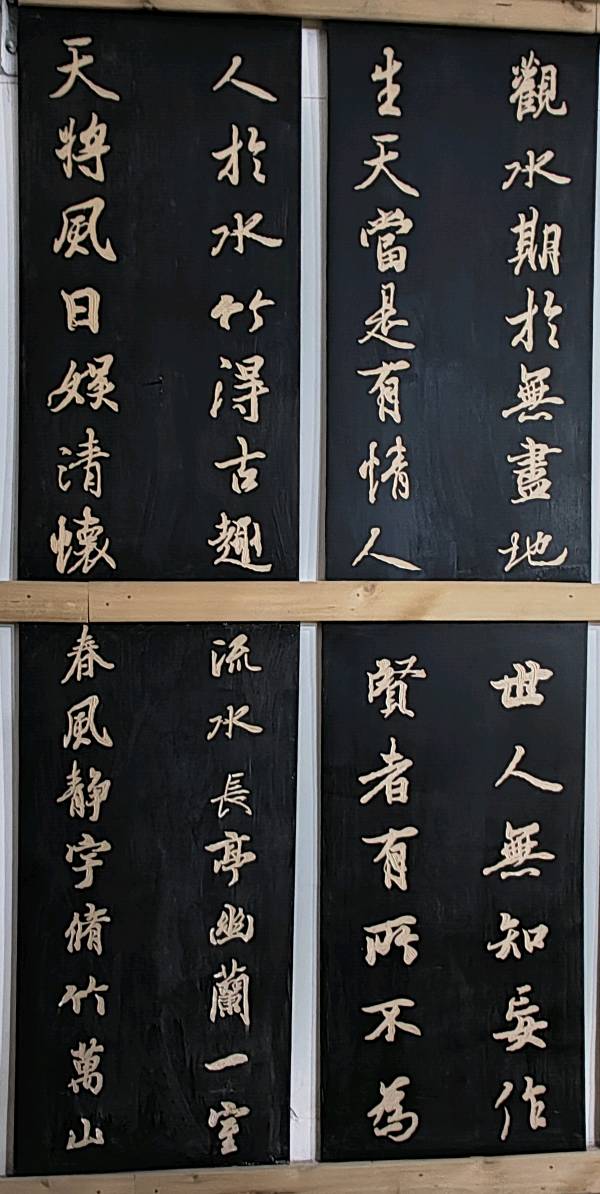 觀水期於無盡地
生天當是有情人
人於水竹得古趣
天將風日娛清懷
世人無知妄作
賢者有所不為
流水長亭幽蘭一室
春風靜宇脩竹萬山